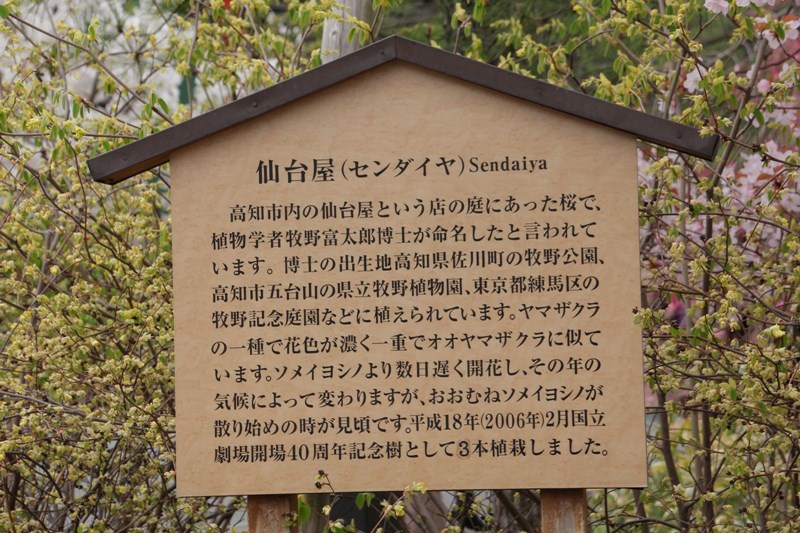 仙台屋(センダイヤ)Sendaiya
高知市内の仙台屋という店の庭にあった桜で、
植物学者牧野富太郎博士が命名したと言われて
います。博士の出生地高知県佐川町の牧野公園、
高知市五台山の県立牧野植物園、東京都練馬区の
牧野記念庭園などに植えられています。ヤマザクラ
の一種で花色が濃く一重でオオヤマザクラに似て
います。ソメイヨシノより数日遅く開花し、その年の
気候によって変わりますが、おおむねソメイヨシノが
散り始めの時が見頃です。平成18年(2006年)2月国立
劇場開場40周年記念樹として3本植栽しました。